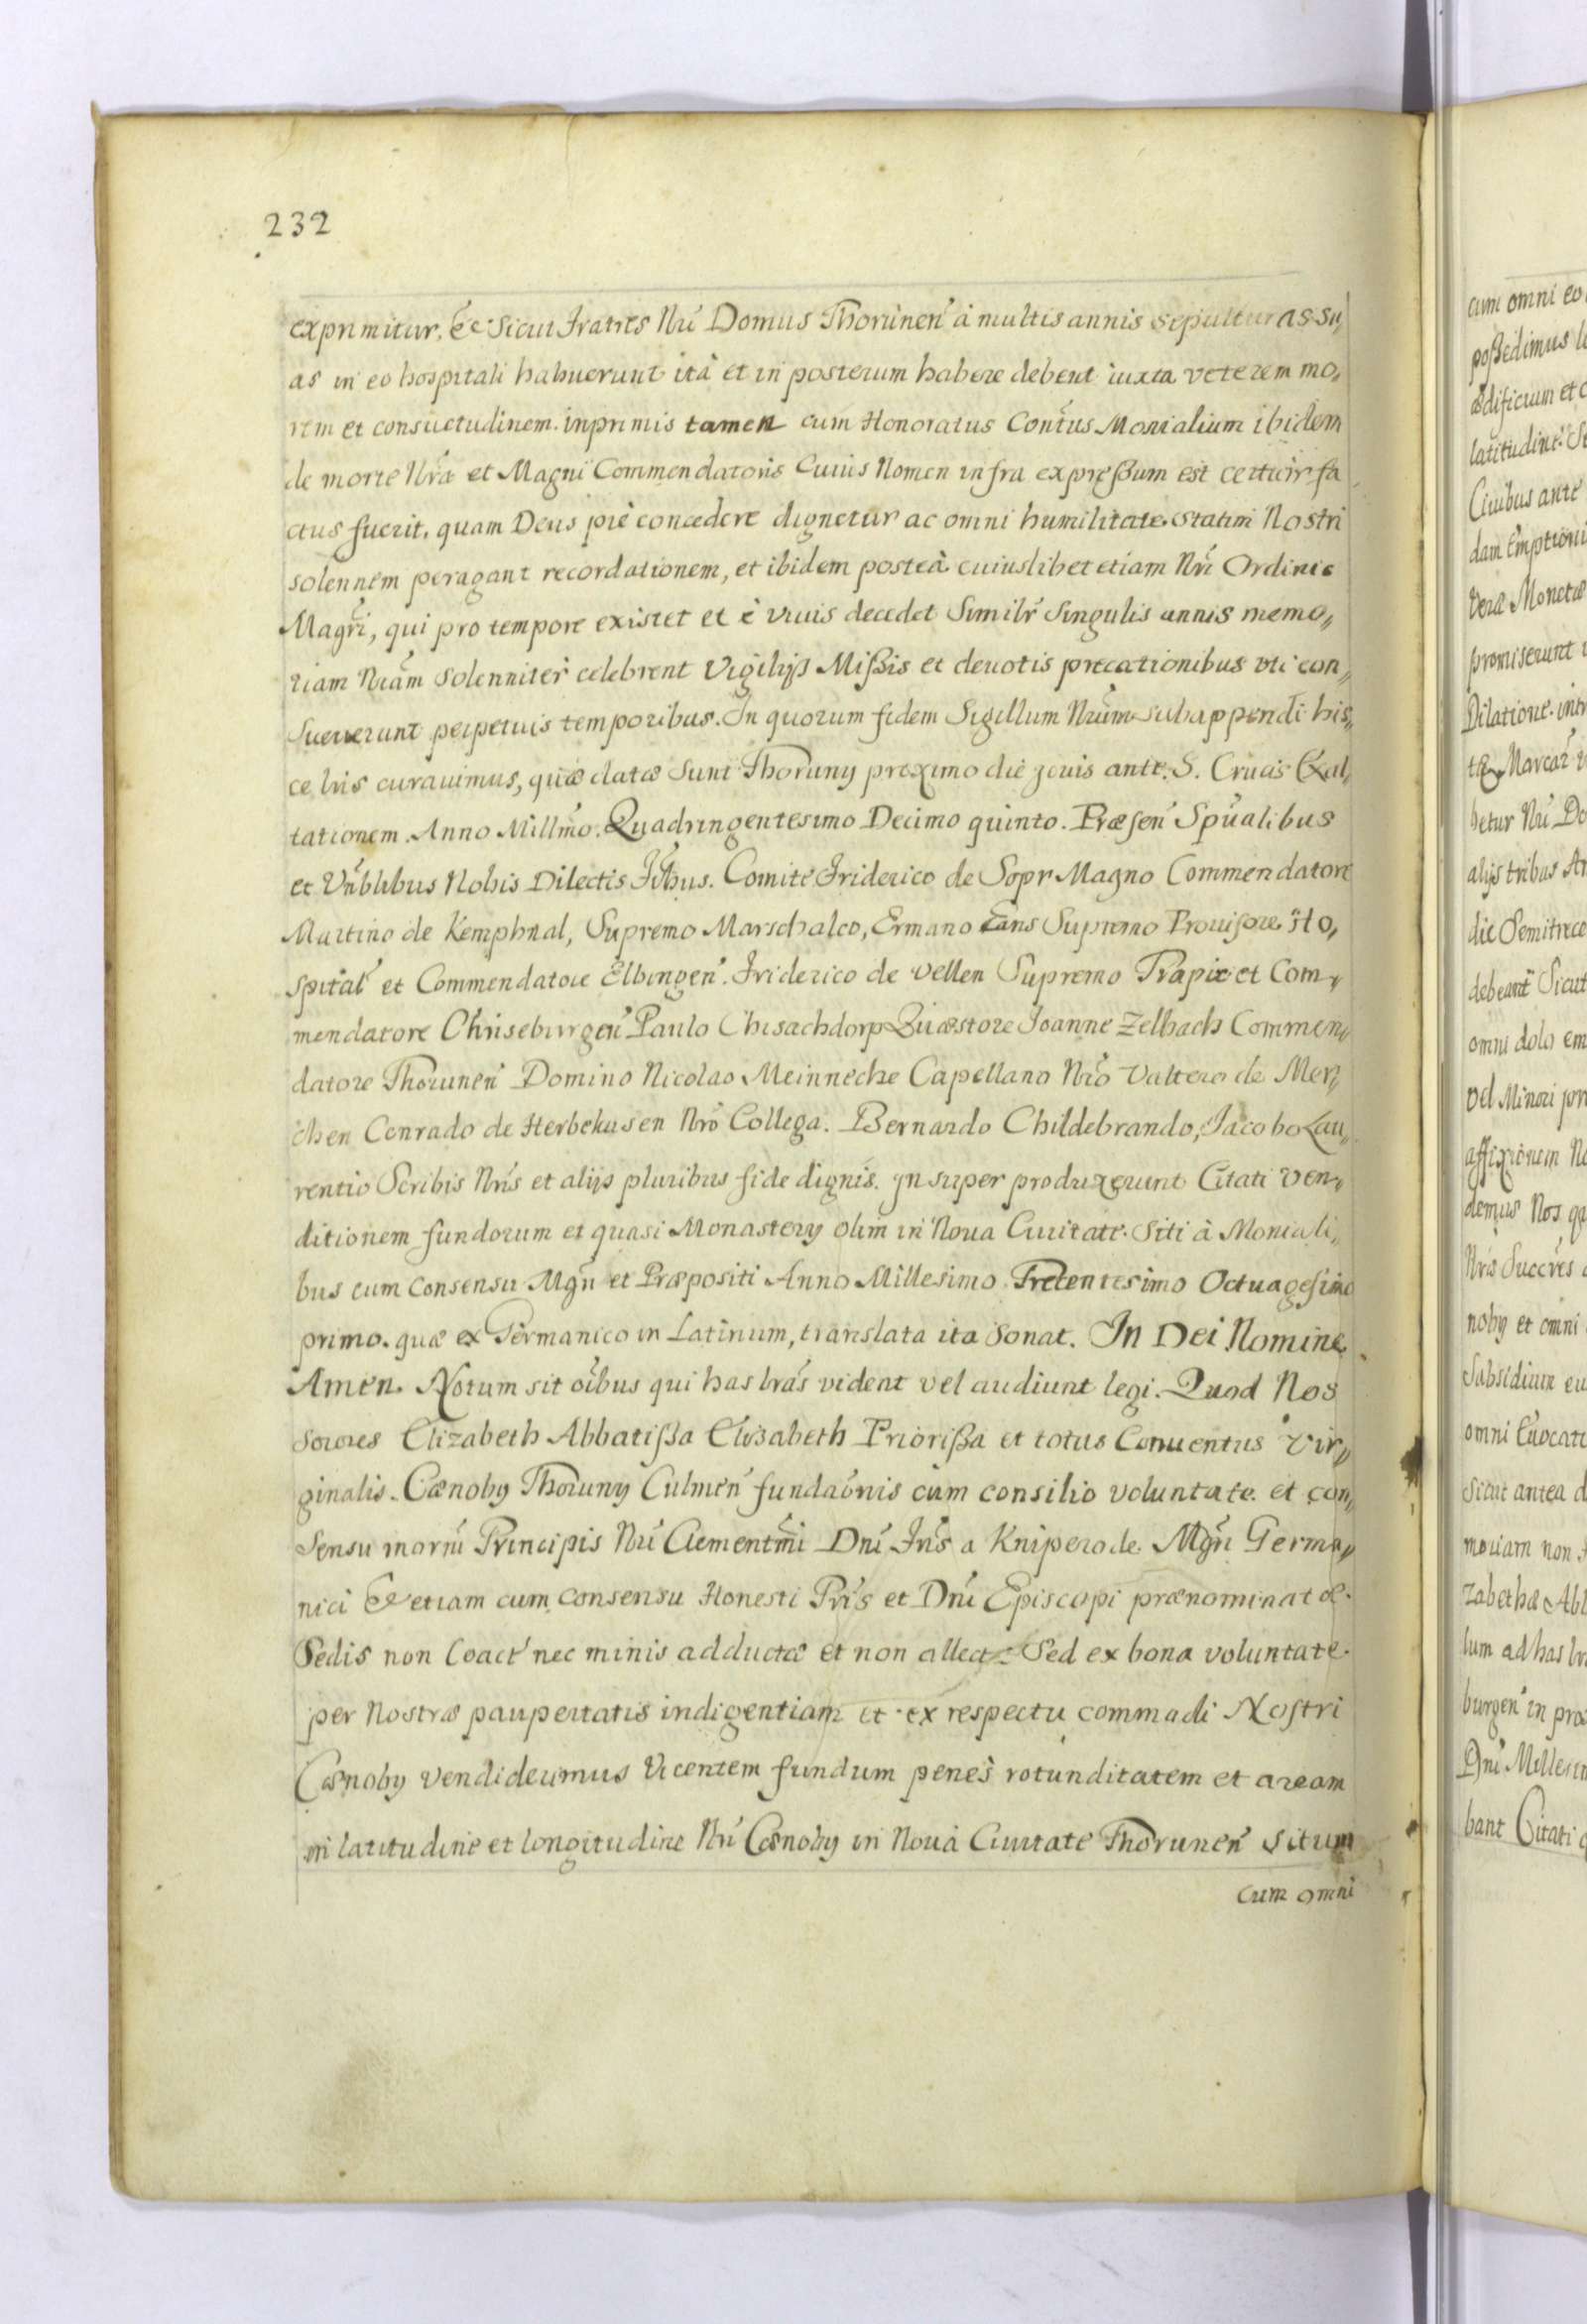 232
exprimitur. Et Sicut Fratres Nrí Domus Thorunen̄ à multis annis sepulturas su„
as in eo hospitali habuerunt ità et in posterum habere debent iuxta veterem mo„
rem et consuetudinem. inprimis tamen cum Honoratus Contus Monialium ibidem
de morte Nrá et Magni Commendatoris Cuius Nomen infra expreßum est certior fa
ctus fuerit, quam Deus piè concedere dignetur ac omni humilitate statim Nostri
solennem peragant recordationem, et ibidem posteà cuiuslibet etiam Nrí Ordinis
Magri, qui pro tempore existet et è viuis decedet Similr Singulis annis memo„
riam Nrám solenniter celebrent Vigilijs Mißis et deuotis precationibus vti con„
sueuerunt perpetuis temporibus. In quorum fidem Sigillum Nrúm subappendi his„
ce lris curauimus, quæ datæ sunt Thoruny proximo die jouis ante S. Crucis Exal„
tationem. Anno Millmo. Quadringentesimo Decimo quinto. Præsen̄ Spualibus
et Vnblibus Nobis Dilectis Frbus. Comite Friderico de Sopr Magno Commendatore
Martino de Kemphnal, Supremo Marschalco, Ermano Gans Supremo Prouisore Ho„
spital et Commendatore Elbingen̄. Friderico de Vellen Supremo Trapir et Com„
mendatore Chriseburgen̄ Paulo Chisachdorp Quæstore Joanne Zelbach Commen„
datore Thorunen̄ Domino Nicolao Meinneche Capellano Nró Valtero de Mer„
chen Conrado de Herbekusen Nró Collega. Bernardo Childebrando, Jacobo Lau„
rentio Scribis Nrís et alijs pluribus fide dignis. Jnsuper produxerunt Citati ven„
ditionem fundorum et quasi Monastery olim in Noua Ciuitate siti à Moniali„
bus cum consensu Mgri et Præpositi Anno Millesimo Trecentesimo Octuagesimo
primo. quæ ex Germanico in Latinum, translata ita sonat. In Dei Nomine
Amen. Notum sit oibus qui has lras vident vel audiunt legi. Quod Nos
sorores Elizabeth Abbatißa Elisabeth Priorißa et totus Conuentus Vir„
ginalis. Cænoby Thoruny Culmen̄ fundaonis cum consilio voluntate et con„
sensu Principis Nrí Clementmi Dni Fris a Kniperode Mgri Germa„
nici et etiam cum consensu Honesti Pris et Dni Episcopi prænominatæ
Sedis non Coact nec minis adductæ et non allectæ Sed ex bona voluntate
per Nostræ paupertatis indigentiam et ex respectu commodi Nostri
Cænoby vendideumus Vicentem fundum penes rotunditatem et aream
in latitudine et longitudine Nrí Cænoby in Nouà Ciuitate Thorunen̄ situm
cum omni